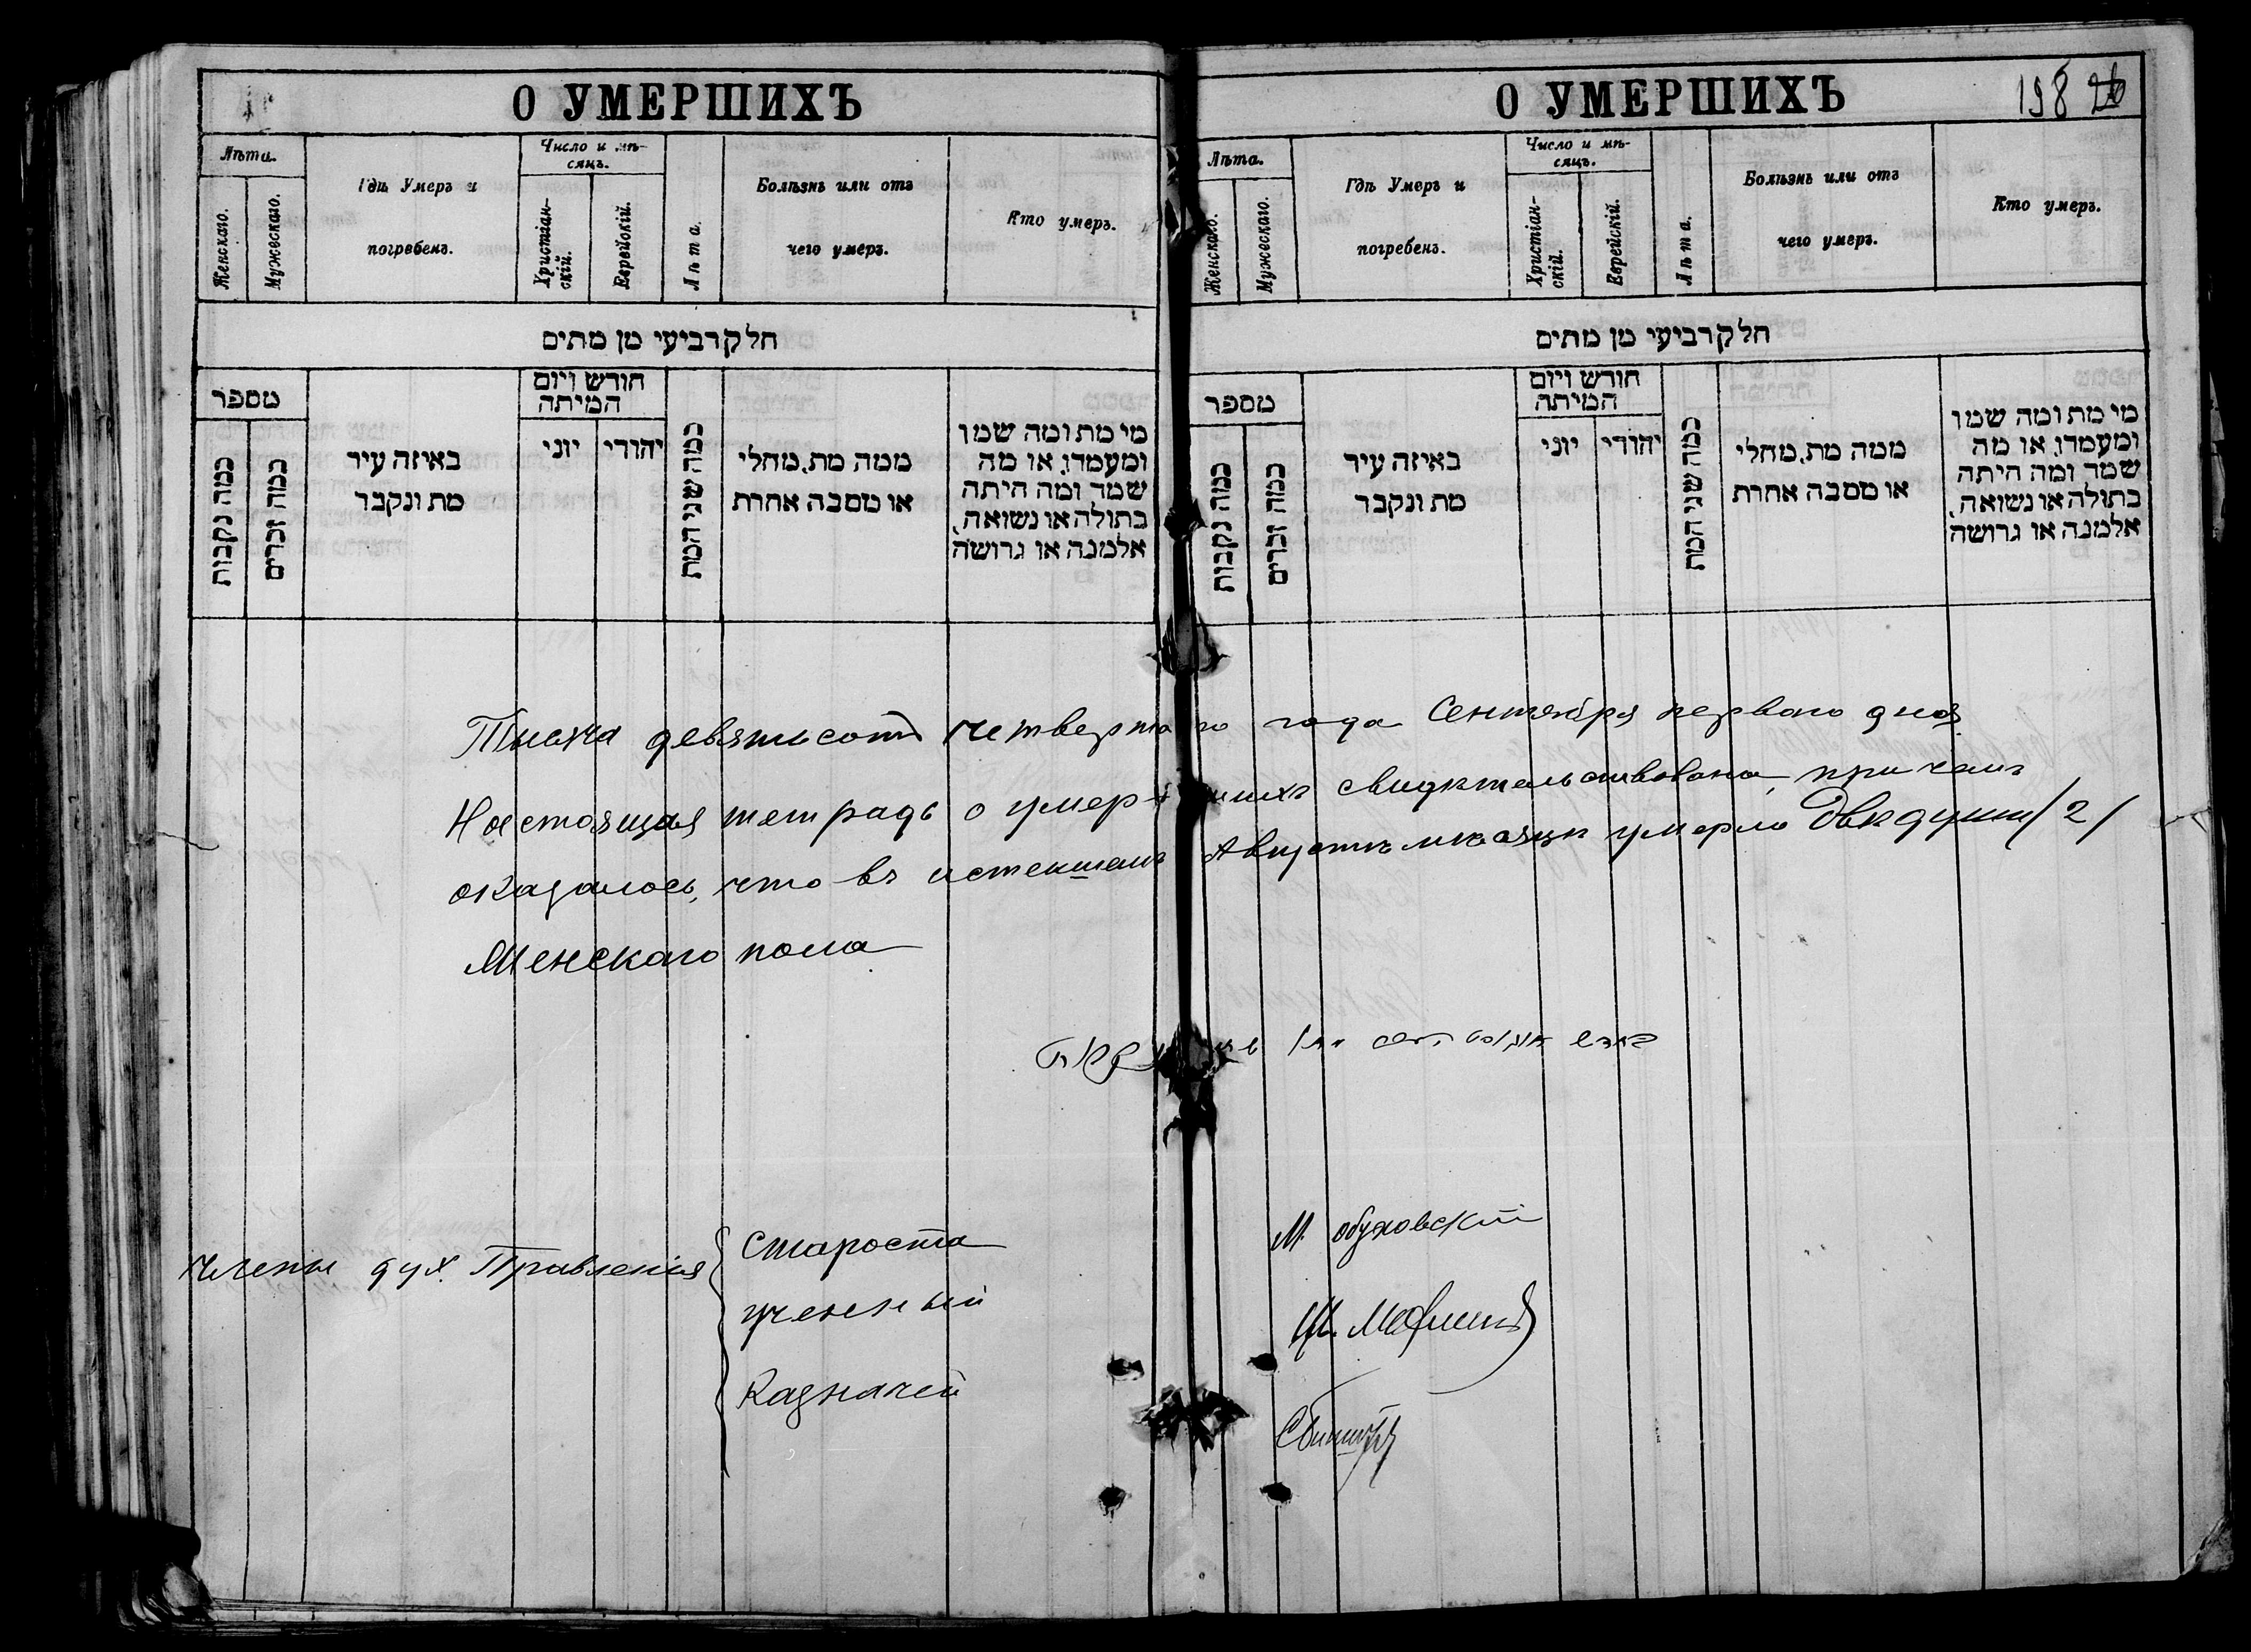 О УМЕРШИХЪ
Лѣта.
Женскаго.
Мужескаго.
Гдѣ Умеръ и
погребенъ.
Число и мѣ-
сяцъ.
Христіан-
скій.
Еврейскій.
Лѣта.
Болѣзнь или отъ
чего умеръ.
Кто умеръ.
חלק רביעי מן מתים
מספר
כמה נקבות
כמה זכרים
באיזה עיר
מת ונקבר
חודש ויום
המיתה
יוני
יהודי
כמה שני המת
ממה מת, מחלי
או מסבה אחרת
מי מת ומה שמו
ומעמדו, או מה
שמה ומה היתה
בתולה או נשואה,
אלמנה או גרושה
О УМЕРШИХЪ
198
Лѣта.
Женскаго.
Мужескаго.
Гдѣ Умеръ и
погребенъ.
Число и мѣ-
сяцъ.
Христіан-
скій.
Еврейскій.
Лѣта.
Болѣзнь или отъ
чего умеръ.
Кто умеръ.
חלק רביעי מן מתים
מספר
כמה נקבות
כמה זכרים
באיזה עיר
מת ונקבר
חודש ויום
המיתה
יוני
יהודי
כמה שני המת
ממה מת, מחלי
או מסבה אחרת
מי מת ומה שמו
ומעמדו, או מה
שמה ומה היתה
בתולה או נשואה,
אלמנה או גרושה
Тысяча девятьсотъ четвертаго года Сентября перваго дня
Настоящая тетрадь о умершихъ свидѣтельствована, при чемъ
оказалось, что въ истекшемъ Августѣ мѣсяцѣ умерло двѣ души /2/
Женскаго пола
Члены дух. Правленія
Староста
М. Обуховскій
ученый
Казначей